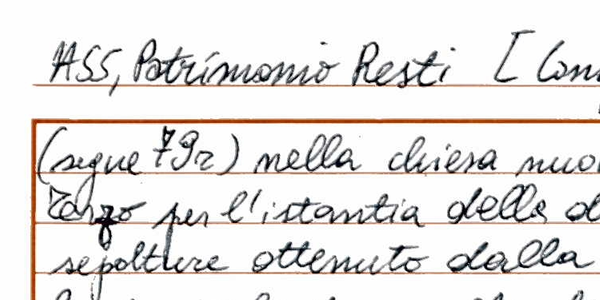 ASS, Patrimonio Resti [ Con
(segue 79r) nella chiesa nuo
renzo per l'istantia della d
sepolture ottenuto dalla